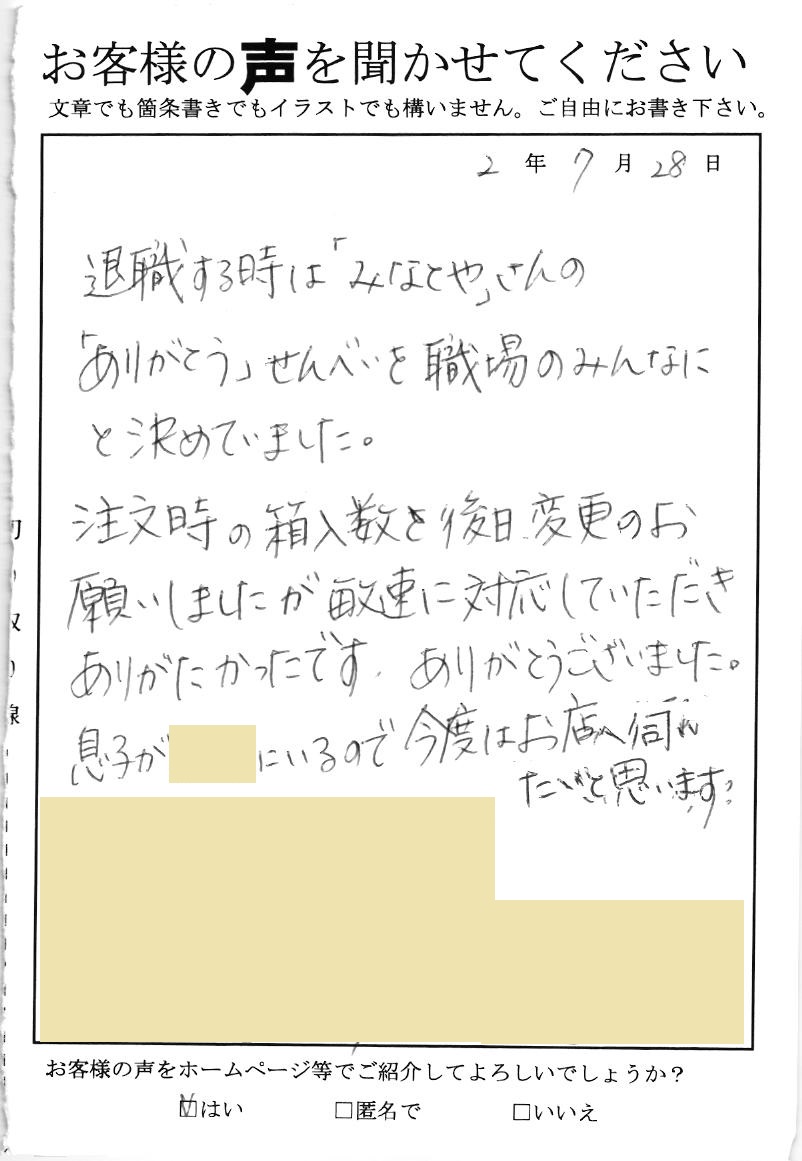 お客様の声を聞かせてください
文章でも箇条書きでもイラストでも構いません。ご自由にお書き下さい。
2 年 7 月 28 日
退職する時は「みなとや」さんの
「ありがとう」せんべいを職場のみんなに
と決めていました。
注文時の箱入数を後日変更のお
願いしましたが敏速に対応していただき
ありがたかったです。ありがとうございました。
息子が
にいるので今度はお店へ伺い
たいと思います。
切り取り線
お客様の声をホームページ等でご紹介してよろしいでしょうか?
☑はい □匿名で □いいえ